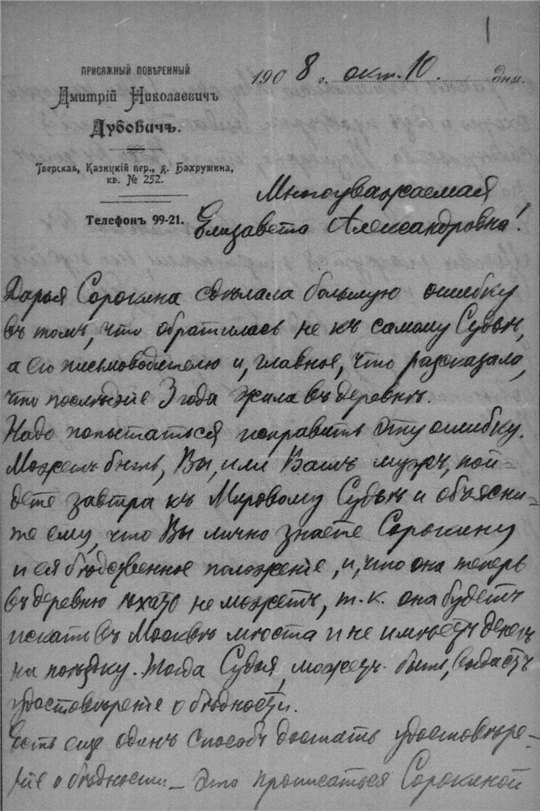 1
ПРИСЯЖНЫЙ ПОВѢРЕННЫЙ
Дмитрій Николаевичъ
Дубовичъ.
Тверская, Казицкій пер., д. Бахрушина,
кв. № 252.
Телефонъ 99-21.
1908 г. окт. 10 дня.
Многоуважаемая
Елизавета Александровна!
Дарья Сорокина сдѣлала большую ошибку
въ томъ, что обратилась не къ самому Судьѣ,
а его письмоводителю и, главное, что разсказала,
что послѣдніе 3 года жила въ деревнѣ.
Надо попытаться исправить эту ошибку.
Можетъ быть, Вы, или Вашъ мужъ, пой-
дете завтра къ Мировому Судьѣ и объясни-
те ему, что Вы лично знаете Сорокину
и ея бѣдственное положеніе, и, что она теперь
въ деревню ѣхать не можетъ, т.к. она будетъ
искать въ Москвѣ мѣста и не имѣетъ денегъ
на поѣздку. Тогда Судья, можетъ быть, выдастъ
удостовѣреніе о бѣдности.
Есть еще одинъ способъ достать удостовѣре-
ніе о бѣдности — это прописаться Сорокиной